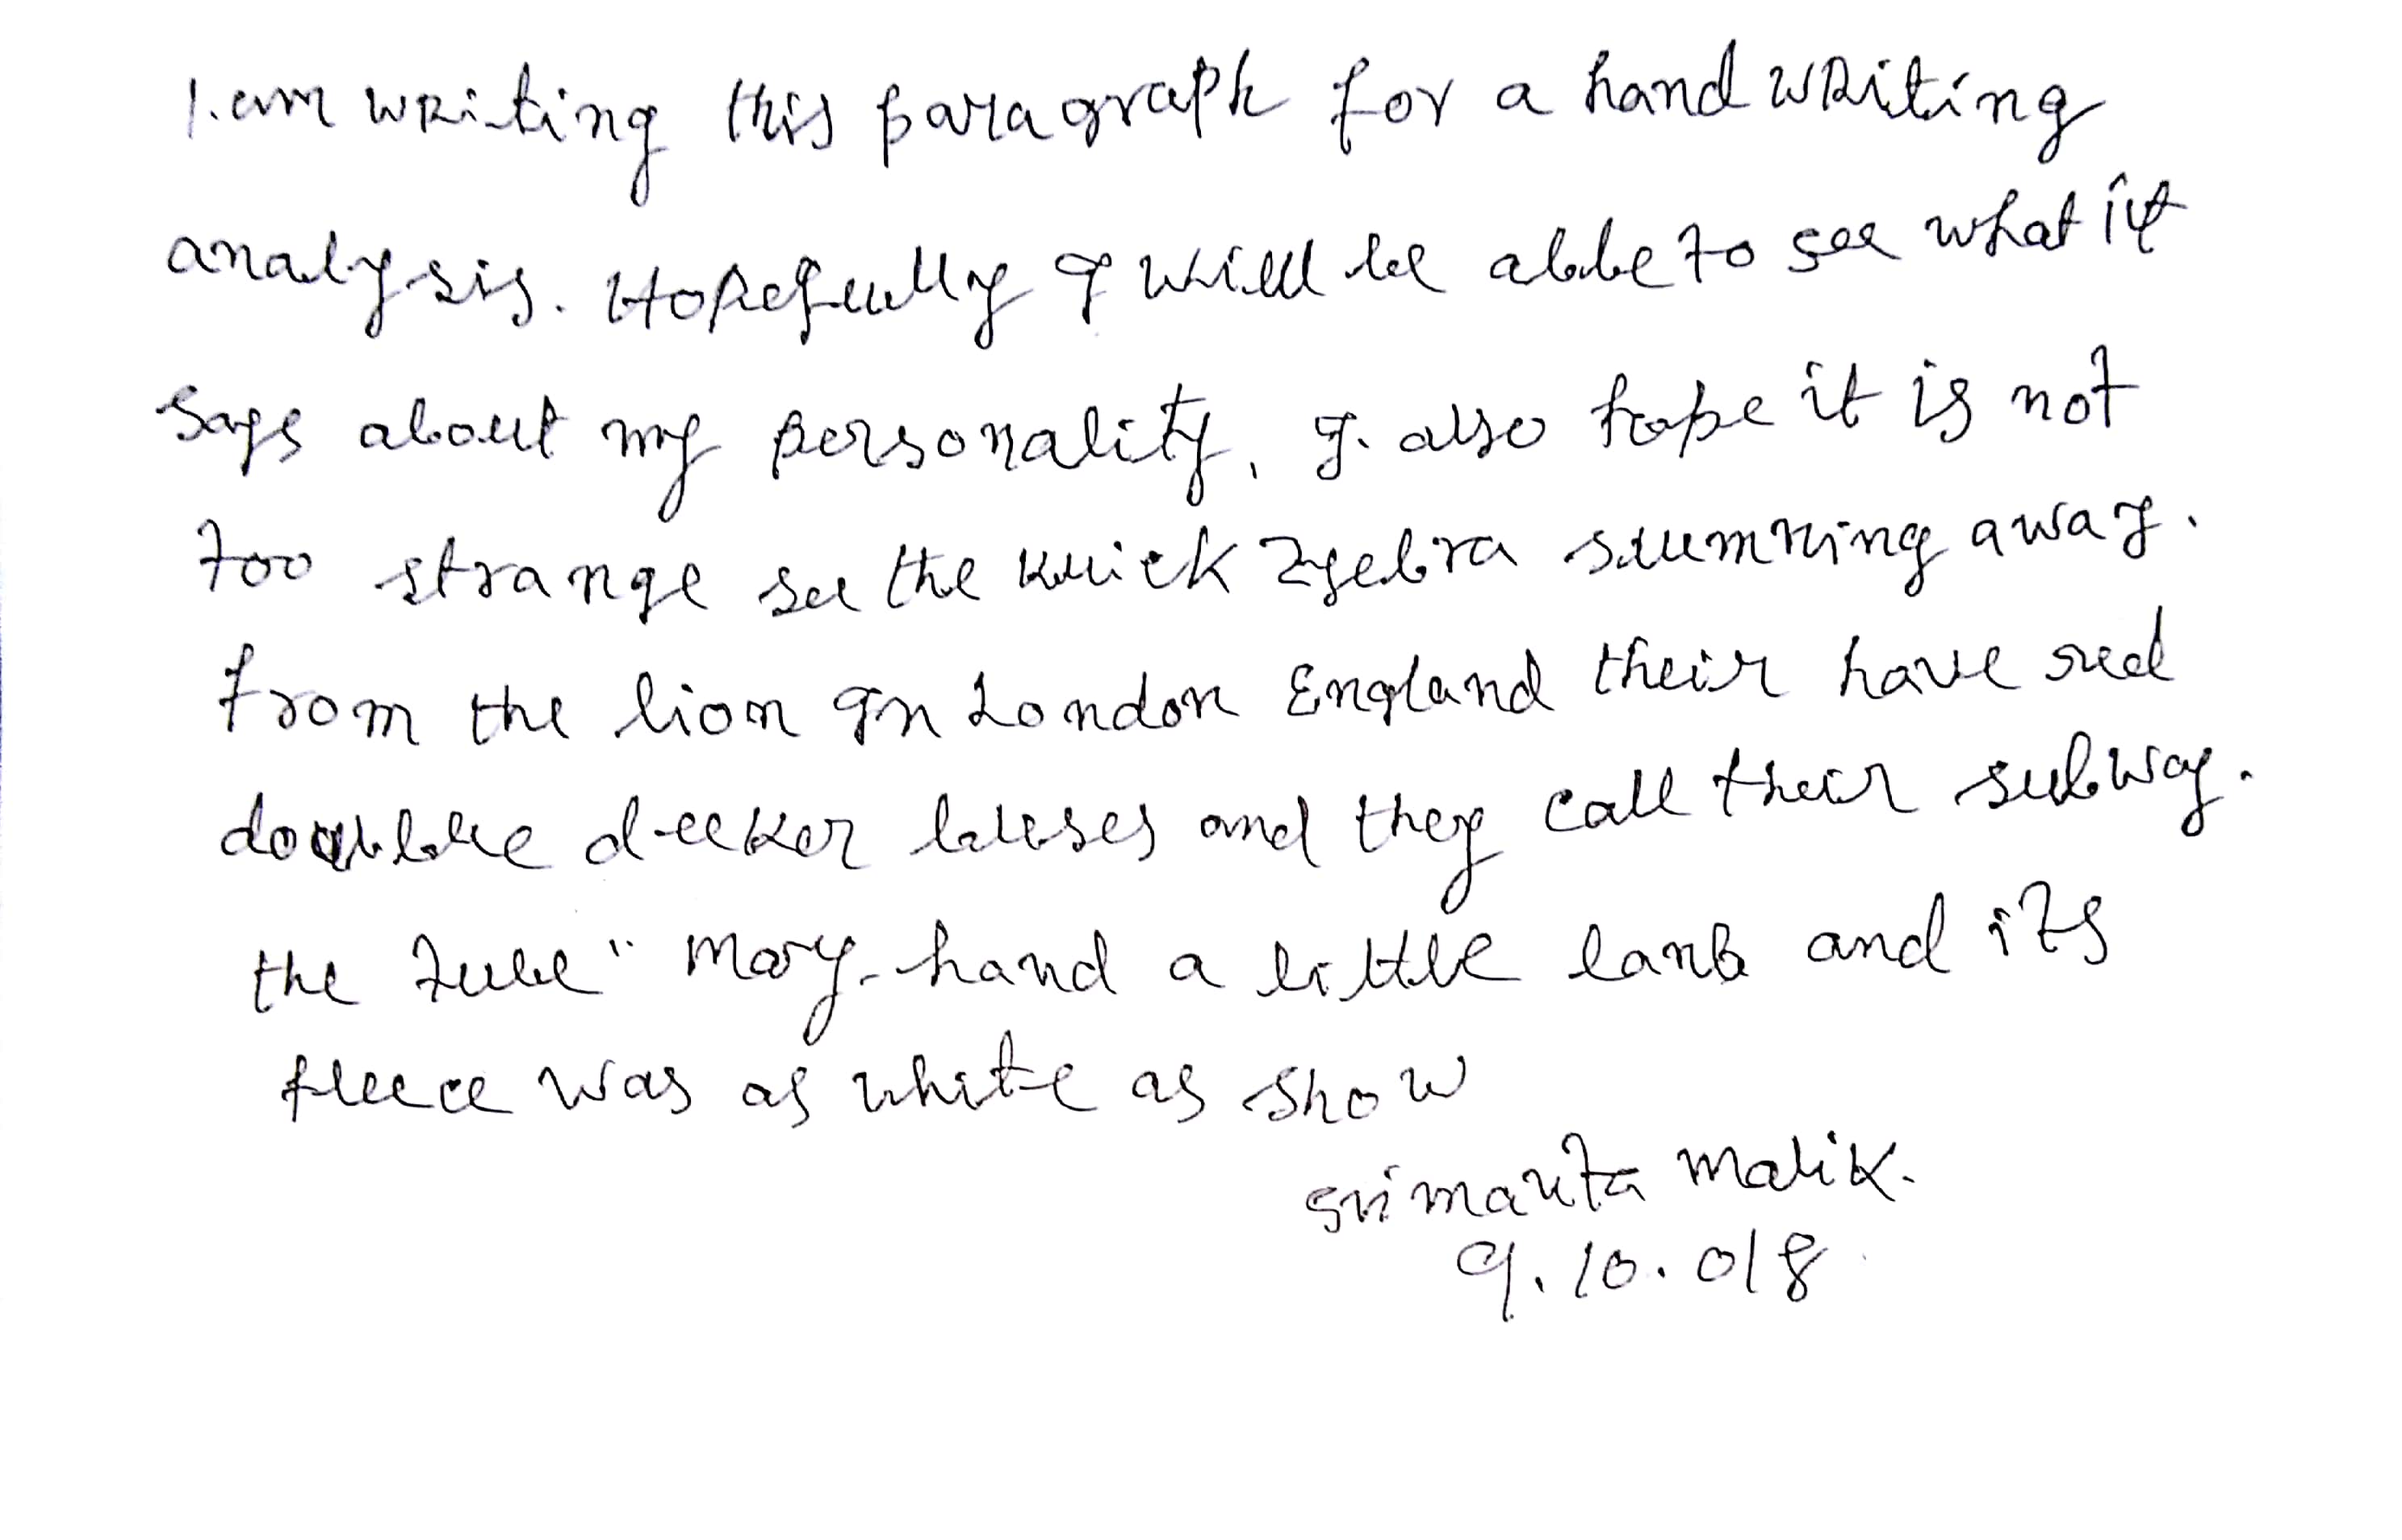 I. am writing this paragraph for a hand writing
analysis. Hopefully I will be able to see what it
says about my personality, I. also hope it is not
too strange see the kuick zyebra sumning away.
from the lion In London England their have red
double decker buses and they call their subway.
the tube" Mary-hand a little lanb and its
fleece was as white as show
Srimanta Malik.
9.10.018